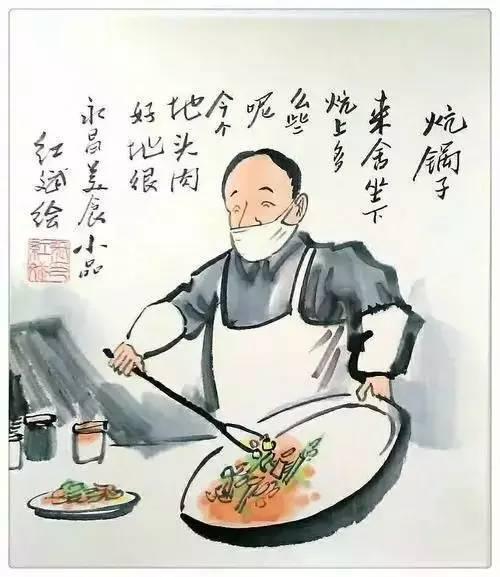 炕锅子
来舍坐下
炕上多
么些
呢
今个
地头肉
好地很
永昌美食小品
红斌绘